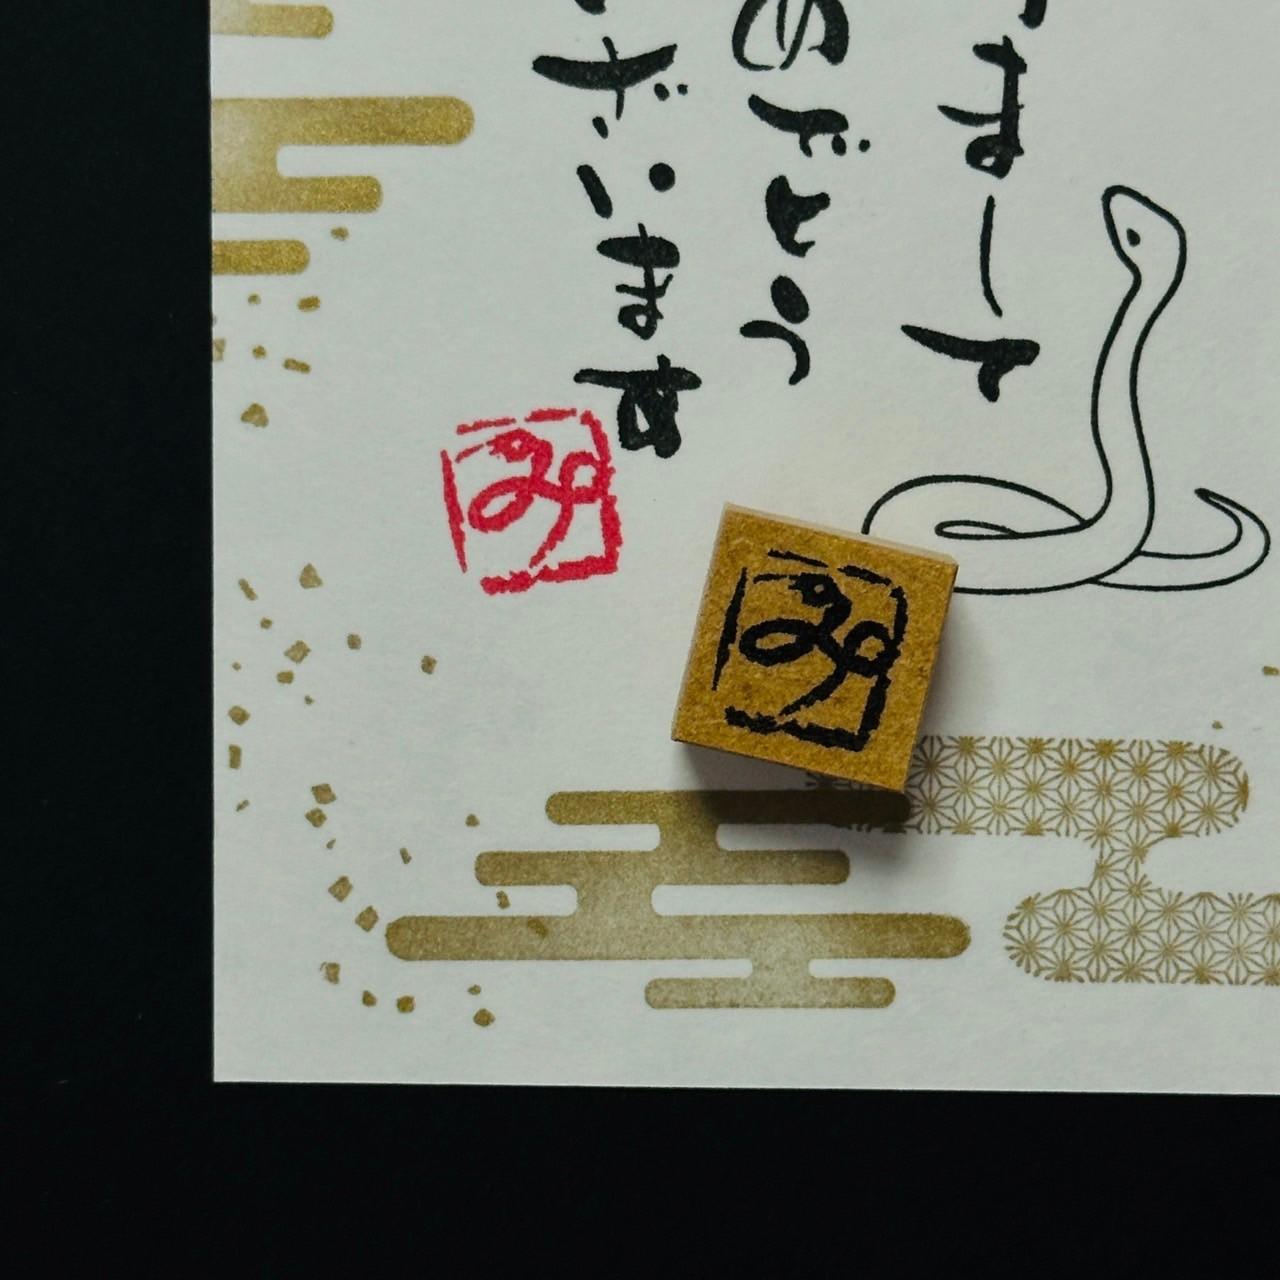 まして
めでとう
ざいます
み
み